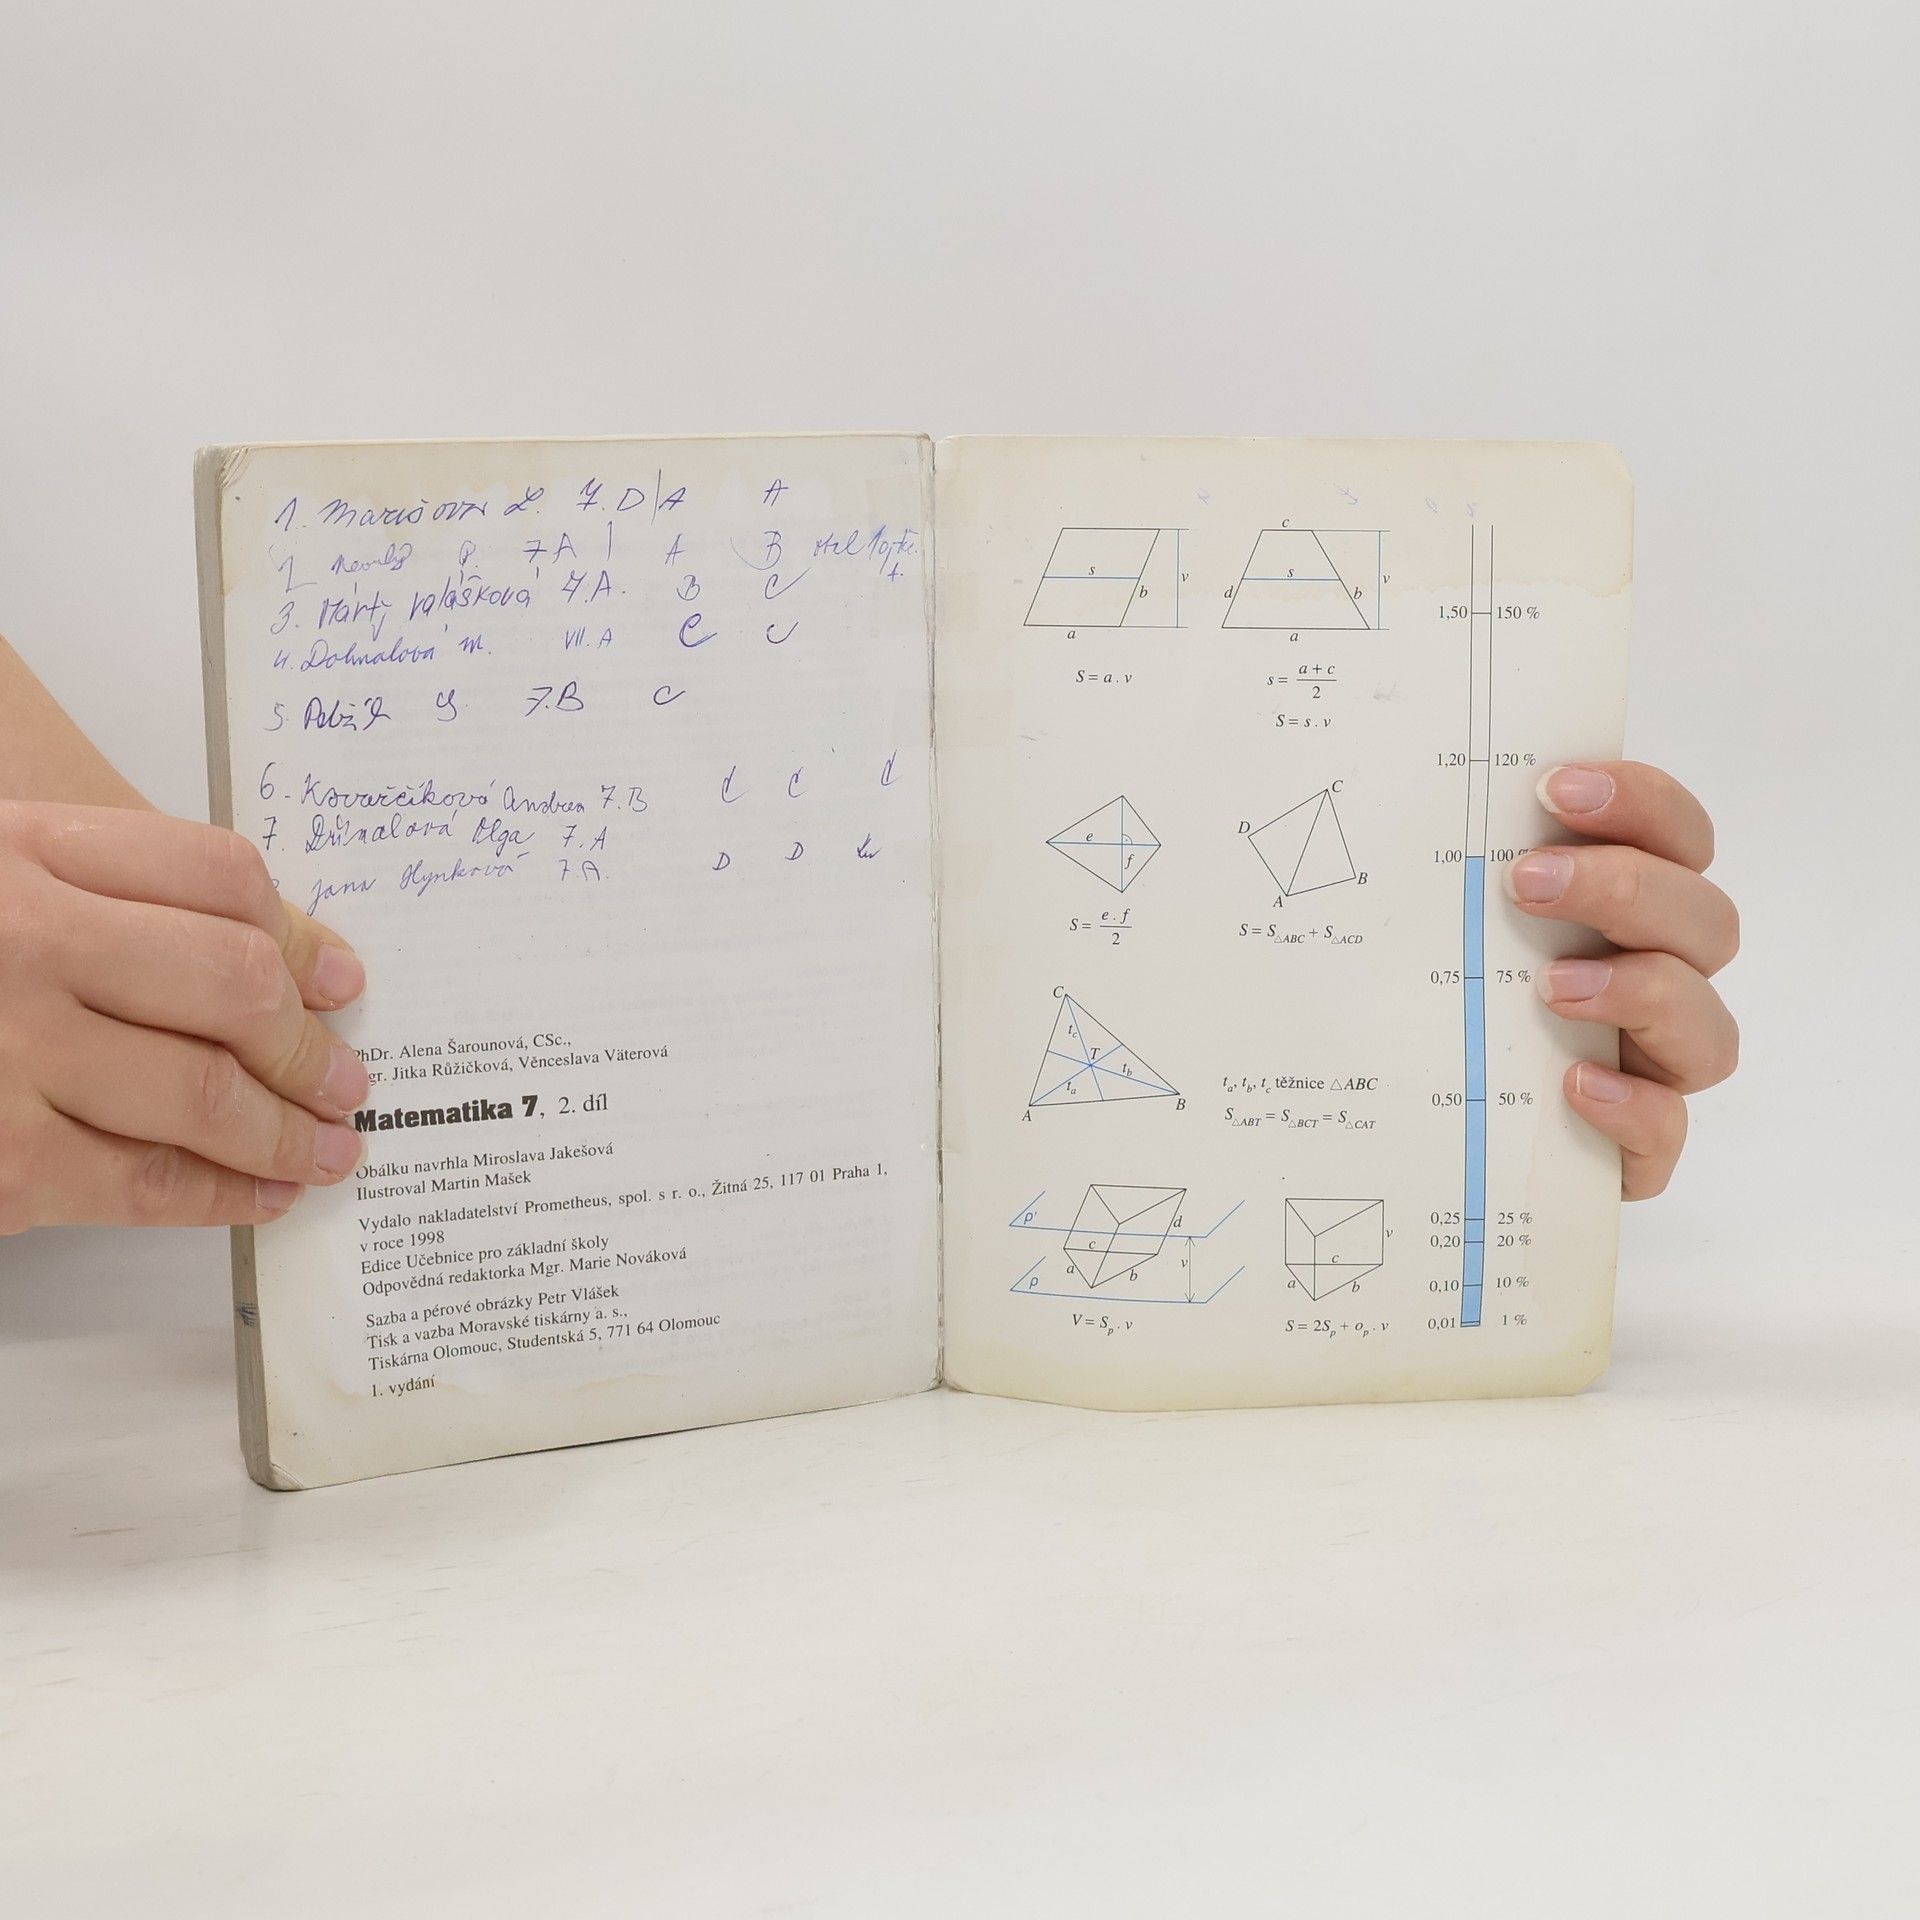 1. Marišova L. 7. D | A A
P. 7 A | A B
3. Márty Valášková 7.A. B C
4. Dohnalová M. VII. A C C
5. 7.B C
6. Kovarčíková Andrea 7.B C C C
7. Dřímalová Olga 7.A
Jana Hynková 7.A. D D
PhDr. Alena Šarounová, CSc.,
gr. Jitka Růžičková, Věnceslava Väterová
Matematika 7, 2. díl
Obálku navrhla Miroslava Jakešová
Ilustroval Martin Mašek
Vydalo nakladatelství Prometheus, spol. s r. o., Žitná 25, 117 01 Praha 1,
v roce 1998
Edice Učebnice pro základní školy
Odpovědná redaktorka Mgr. Marie Nováková
Sazba a pérové obrázky Petr Vlášek
Tisk a vazba Moravské tiskárny a. s.,
Tiskárna Olomouc, Studentská 5, 771 64 Olomouc
1. vydání
s b v a
c d s b v a
S = a . v
s = a + c / 2
S = s . v
e f
C D B A
S = e . f / 2
S = S△ABC + S△ACD
C tc T tb ta A B
ta, tb, tc těžnice △ABC
S△ABT = S△BCT = S△CAT
ρ' d c a b v ρ
v c a b
V = Sp . v
S = 2Sp + op . v
1,50 150 %
1,20 120 %
1,00 100 %
0,75 75 %
0,50 50 %
0,25 25 %
0,20 20 %
0,10 10 %
0,01 1 %